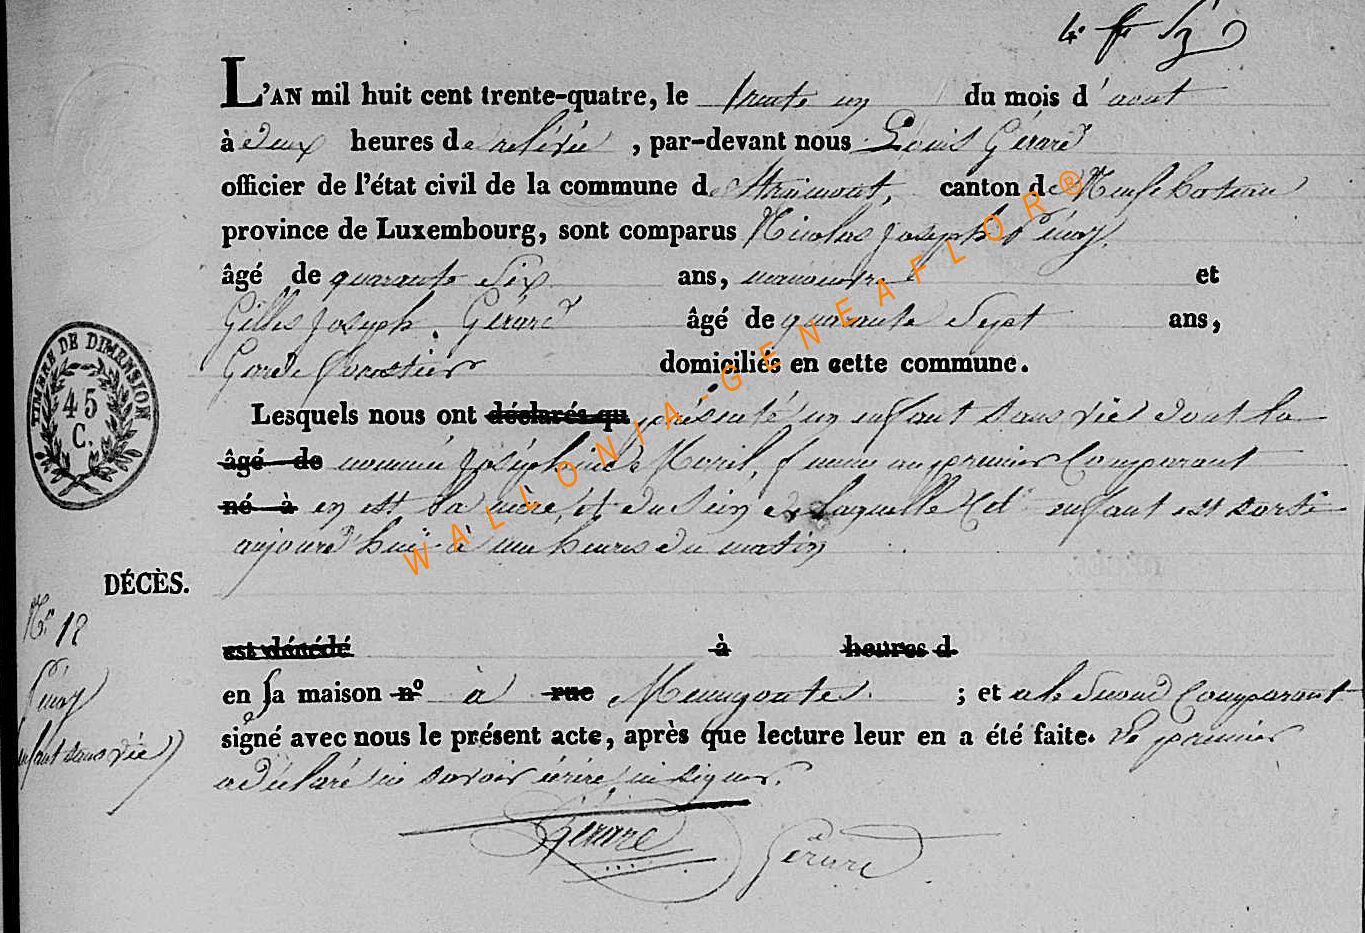 L'AN mil huit cent trente-quatre, le trente un du mois d'aout
à deux heures de relevée, par-devant nous Louis Gérard
officier de l'état civil de la commune de Straimont, canton de Neufchateau
province de Luxembourg, sont comparus Nicolas Joseph
âgé de quarante six ans, manoeuvre et
Gilles Joseph Gérard âgé de quarante sept ans,
Garde forestier domiciliés en cette commune.
Lesquels nous ont déclarés qu présenté un enfant sans vie dont la
âgé de nommée Joséphine femme au premier Comparant
né à en est la mère, et du sein de laquelle cet enfant est sorti
aujourd'hui à une heures du matin
DÉCÈS.
N° 18
enfant sans vie
est décédé à heures d
en sa maison n° à rue Menugoutte ; et a le second Comparant
signé avec nous le présent acte, après que lecture leur en a été faite. Le premier
a déclaré ni savoir écrire ni signer.
Gérard Gérard
TIMBRE DE DIMENSION
45
C.
WALLONIA-GENEAFLOR®